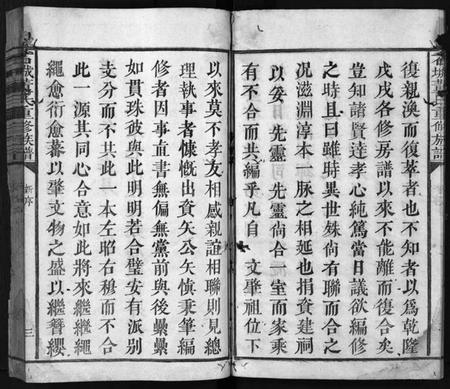 復親渙而復萃者也不知者以爲乾隆
戊戌各修房譜以來不能離而復合矣
豈知諸賢達孝心純篤當日議欲編修
之時且曰雖時異世殊尚有聯而合之
况滋淵淳本一脉之相延也捐資建祠
以妥 先靈 先靈尚合一室而家乘
有不合而共編乎凡自 文肇祖位下
以來莫不孝友相感親誼相聯則見總
理執事者慷慨出資矢公矢慎秉筆編
修者因事直書無偏無黨前與後纍纍
如貫珠彼與此明明若合璧安有派別
支分而不共此一本左昭右穆而不合
此一源其同心合意如此將來繼繼繩
繩愈衍愈蕃以肇文物之盛以繼簪纓
重修族譜
新序
三